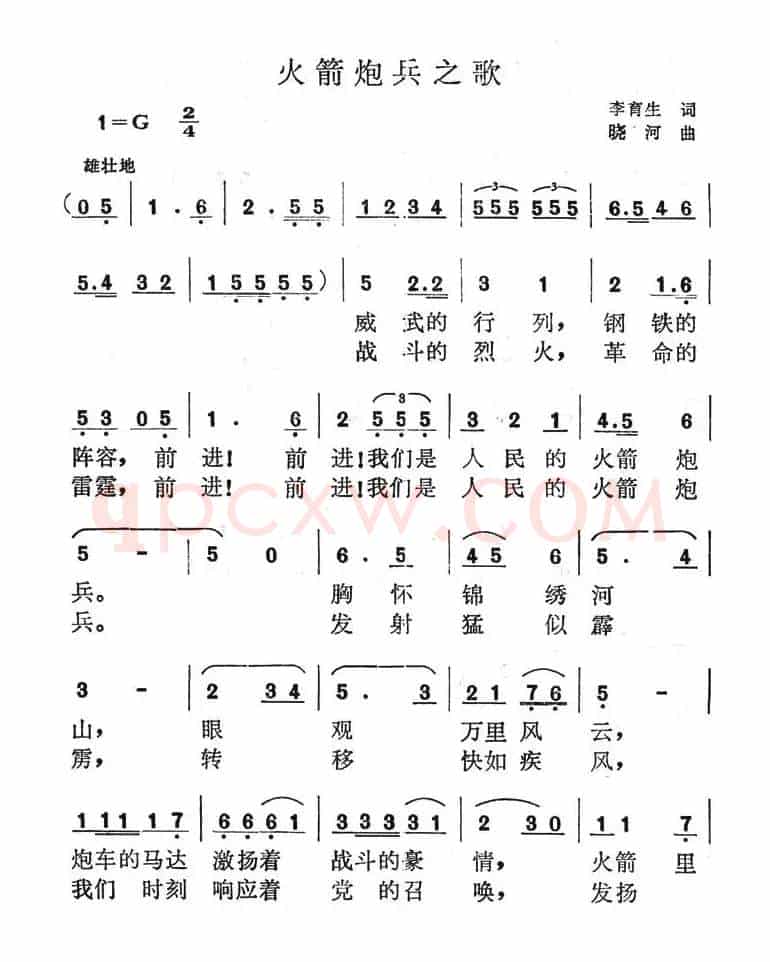 火箭炮兵之歌
1=G 2/4
李育生 词
晓河 曲
雄壮地
(05 | 1.6 | 2.55 | 12 34 | 555 555 | 6.5 46 |
5.4 32 | 15 555) | 5 2.2 | 3 1 | 2 1.6 |
威 武的 行 列, 钢 铁的
战 斗的 烈 火, 革 命的
53 05 | 1. 6 | 2 555 | 3 2 1 | 4.5 6 |
阵容, 前 进! 前 进!我们是 人 民 的 火箭 炮
雷霆, 前 进! 前 进!我们是 人 民 的 火箭 炮
5 - | 5 0 | 6. 5 | 45 6 | 5. 4 |
兵。 胸 怀 锦 绣 河
兵。 发 射 猛 似 霹
3 - | 2 34 | 5. 3 | 21 76 | 5 - |
山, 眼 观 万里 风 云,
雳, 转 移 快如 疾 风,
111 17 | 66 61 | 333 31 | 2 30 | 11 7 |
炮车的马达 激扬着 战斗的豪 情, 火箭 里
我们 时刻 响应着 党 的召 唤, 发扬
qpcxw.com